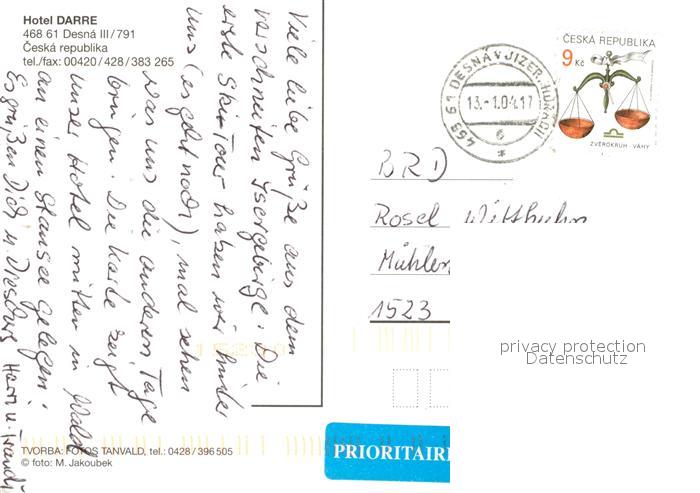 Hotel DARRE
468 61 Desná III/791
Česká republika
tel./fax: 00420/428/383 265
Viele liebe Grüße aus dem
verschneiten Isergebirge. Die
erste Skitour haben wir hinter
uns (es geht noch), mal sehen
was uns die anderen Tage
bringen. Die Karte zeigt
unser Hotel mitten im Wald
an einem Stausee gelegen.
Es grüßen Dich u.
TVORBA: FOTOS TANVALD, tel.: 0428/396 505
© foto: M. Jakoubek
468 61 DESNÁ V JIZER. HORÁCH
13.-1.04.17
6
ČESKÁ REPUBLIKA
9 Kč
ZVĚROKRUH - VÁHY
BRD
Rosel
Mühlen
1523
privacy protection
Datenschutz
PRIORITAIRE